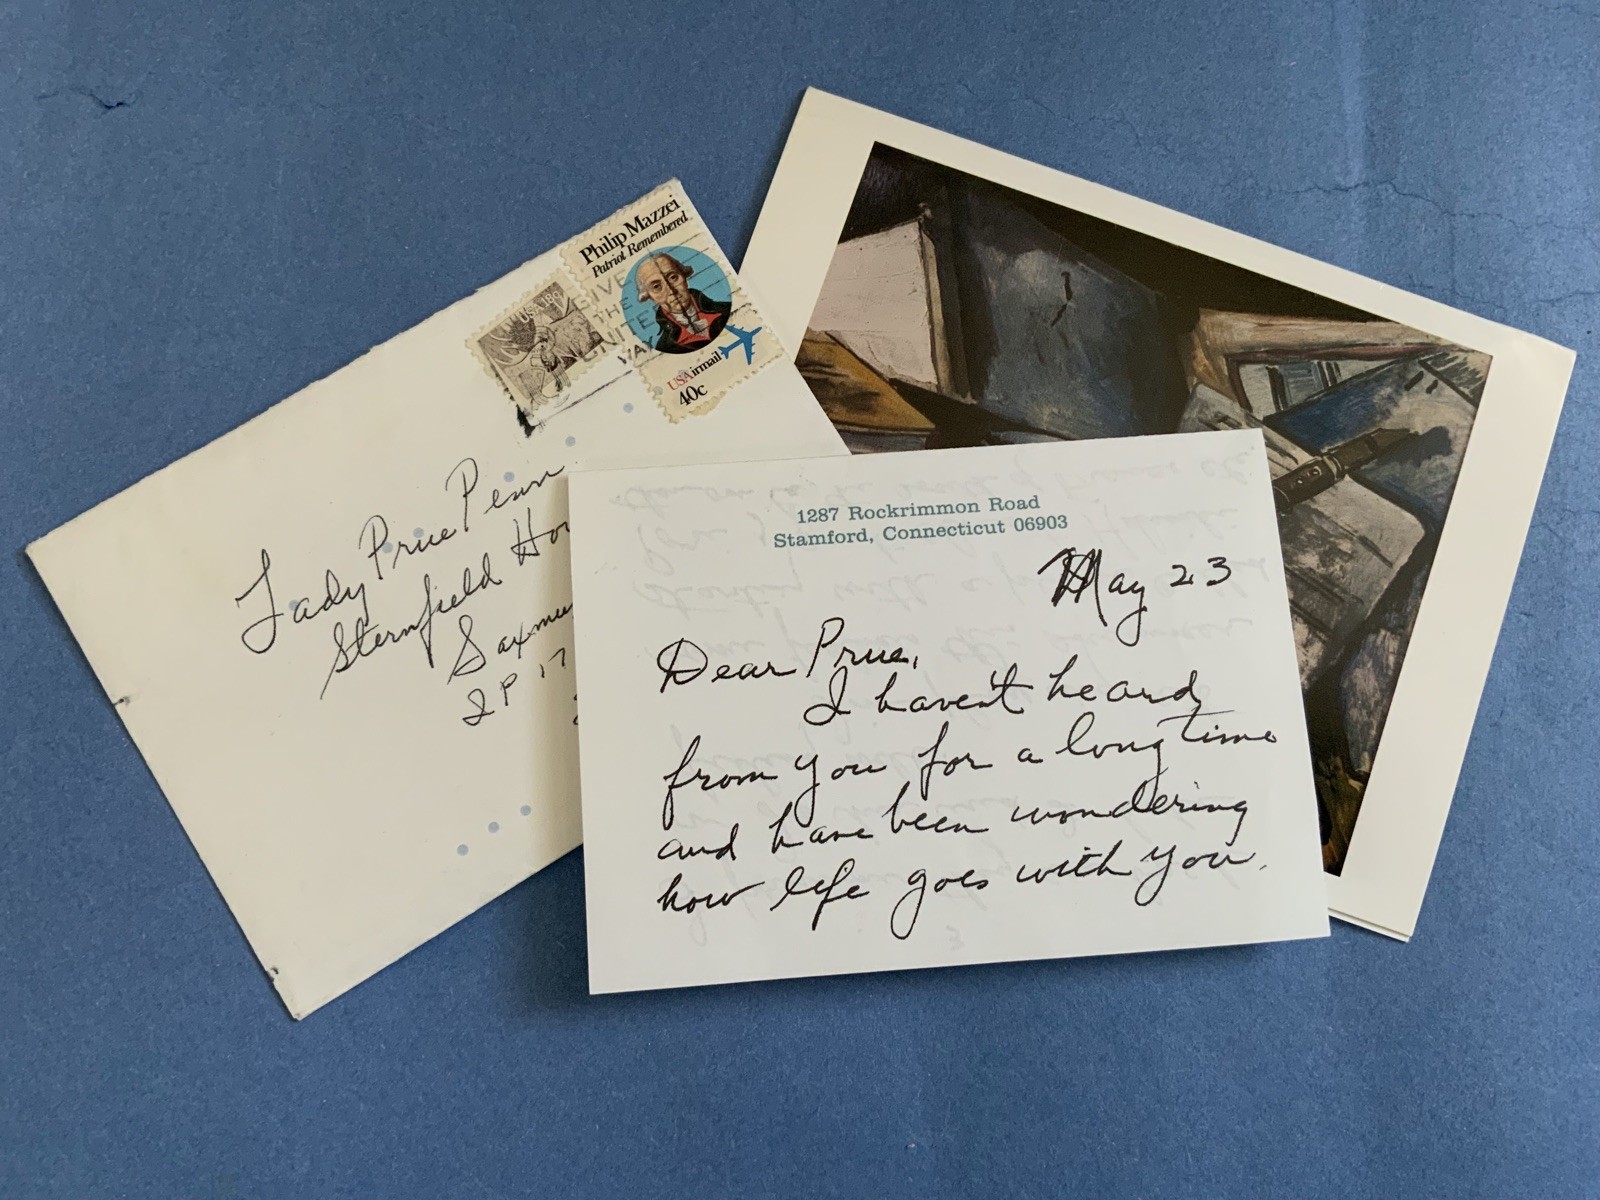 Philip Mazzei
Patriot Remembered
USAirmail
40c
USA 18c
GIVE
THE
UNITED
WAY
Lady Prue Penn
Sternfield Hou
Saxmu
IP 17
1287 Rockrimmon Road
Stamford, Connecticut 06903
May 23
Dear Prue,
I haven't heard
from you for a long time
and have been wondering
how life goes with you.